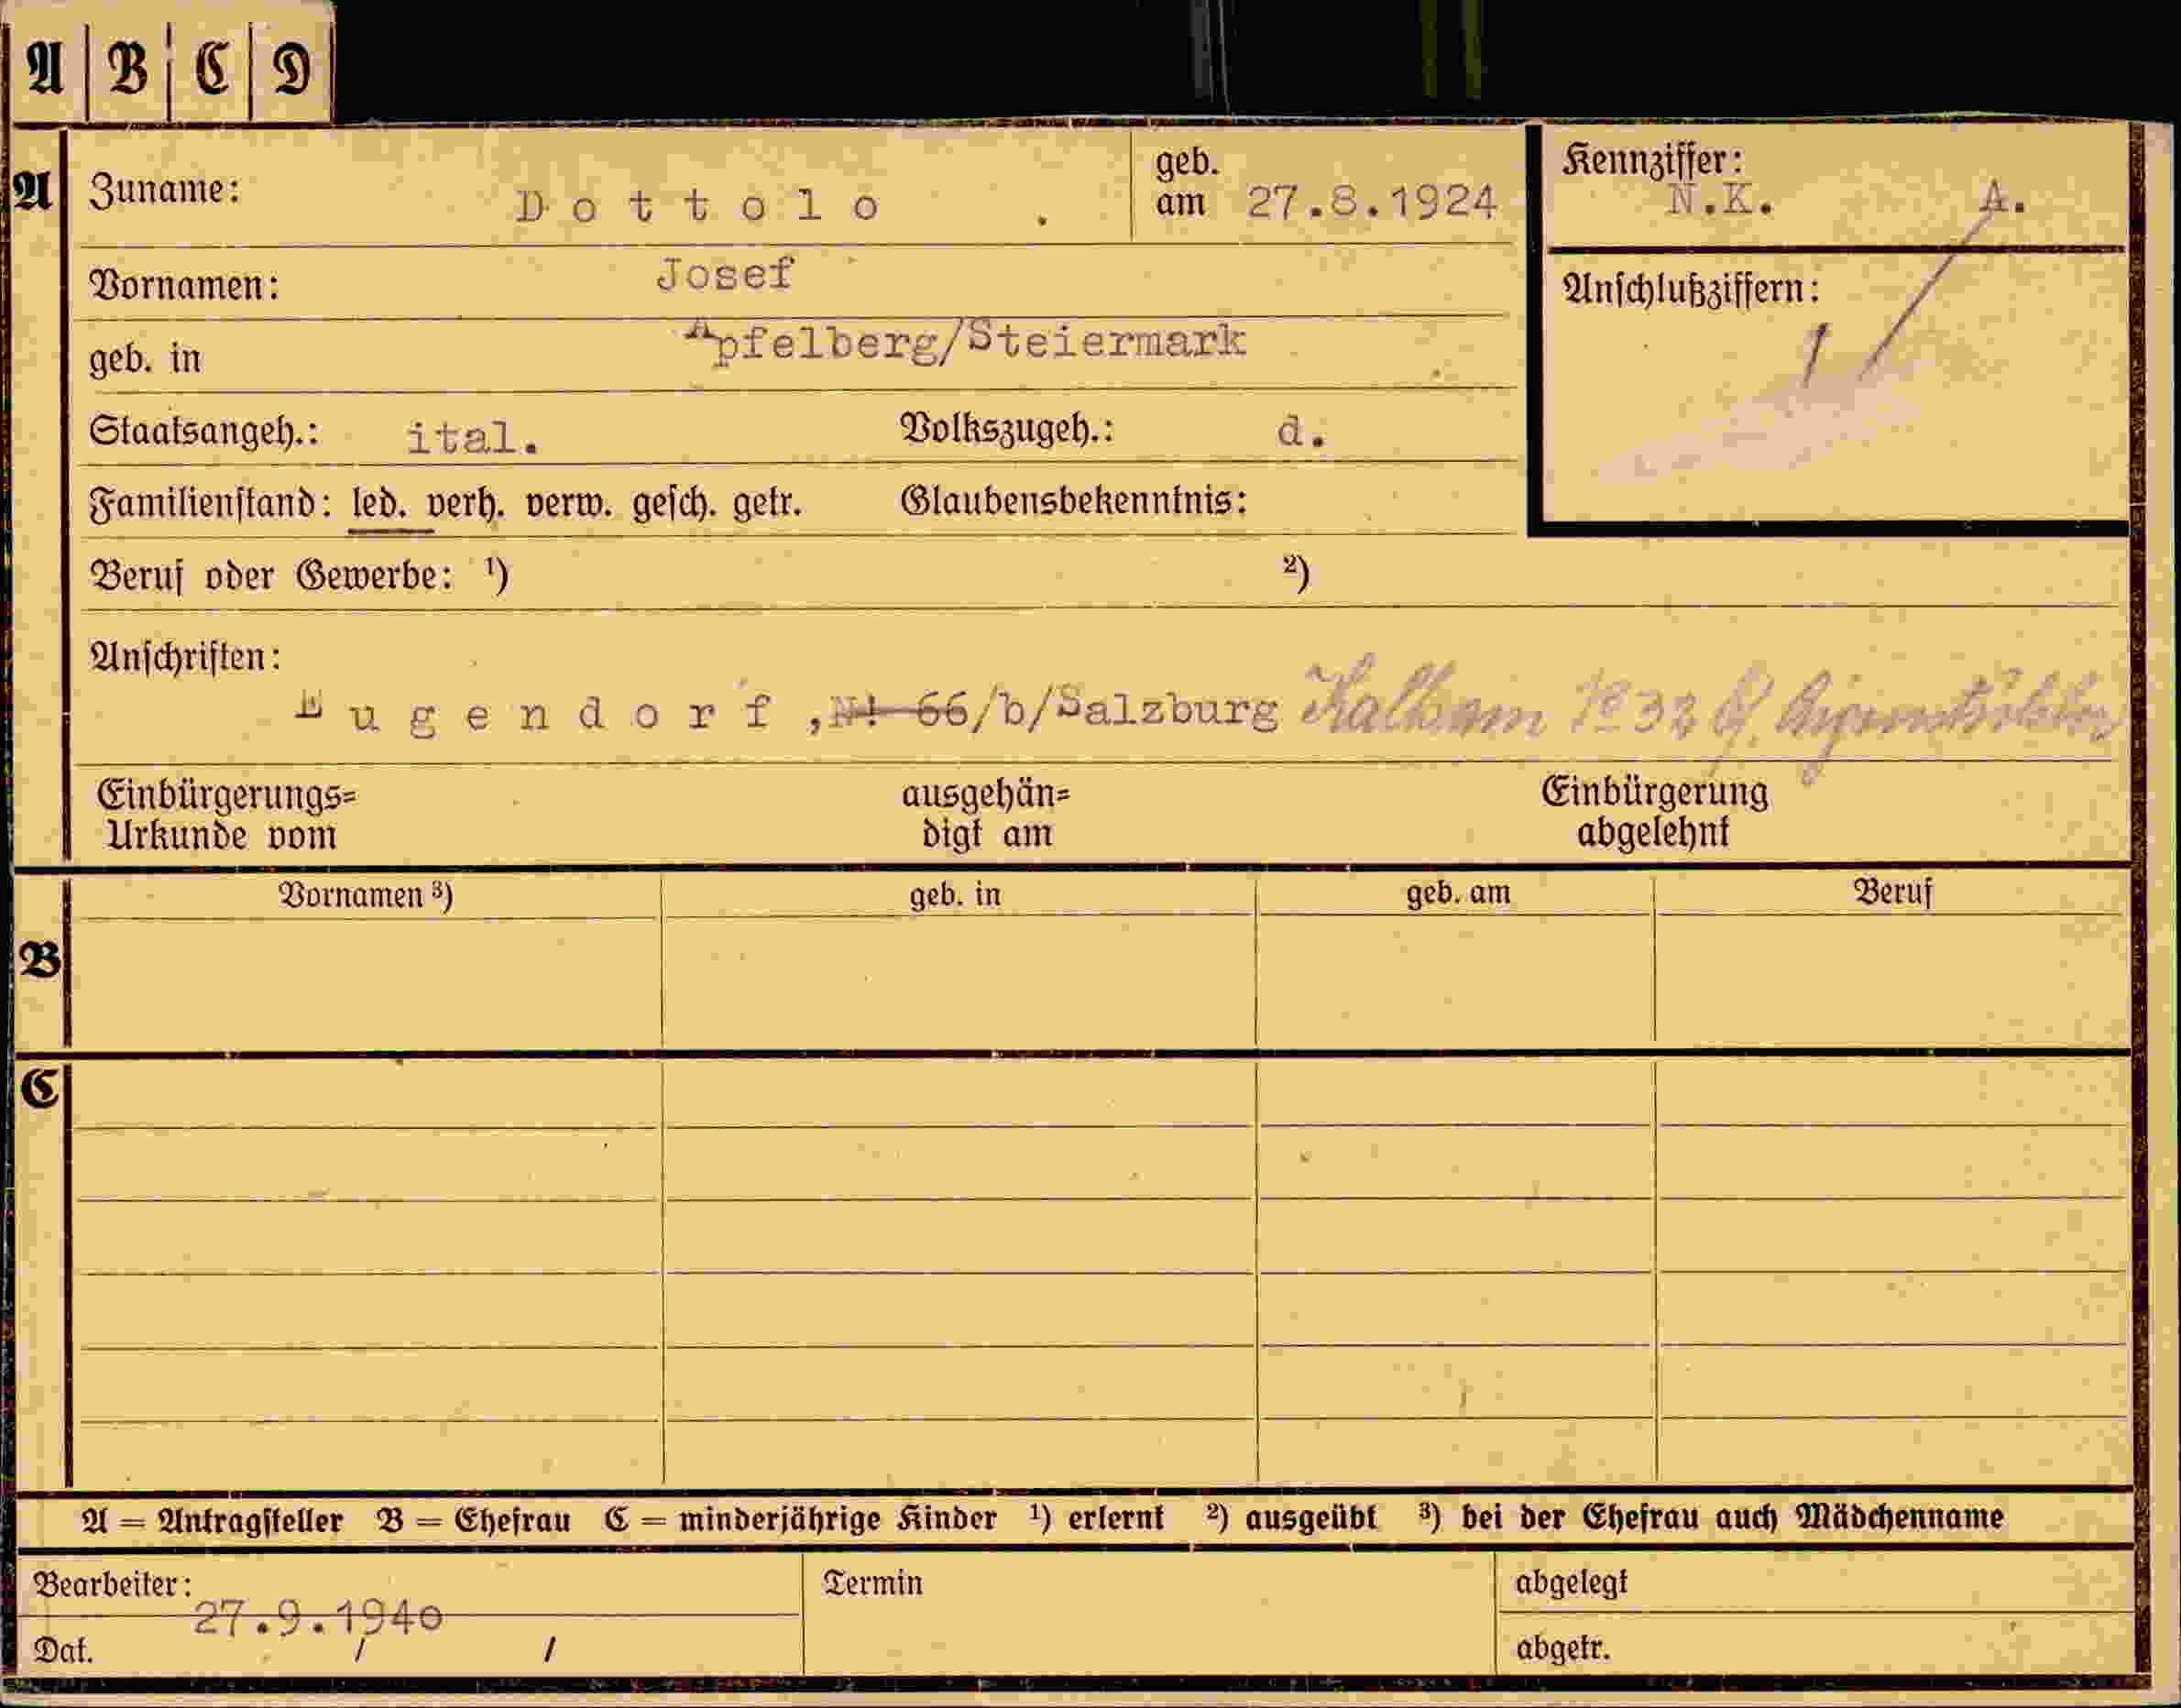 A B C D
A Zuname: Dottolo . geb. am 27.8.1924 Kennziffer: N.K. A.
Vornamen: Josef
Anschlußziffern:
geb. in Apfelberg/Steiermark
Staatsangeh.: ital. Volkszugeh.: d.
Familienstand: led. verh. verw. gesch. getr. Glaubensbekenntnis:
Beruf oder Gewerbe: ¹) ²)
Anschriften:
Eugendorf, N! 66/b/Salzburg Kalham No 32
Einbürgerungs= ausgehän= Einbürgerung
Urkunde vom digt am abgelehnt
Vornamen ³) geb. in geb. am Beruf
B
C
A = Antragsteller B = Ehefrau C = minderjährige Kinder ¹) erlernt ²) ausgeübt ³) bei der Ehefrau auch Mädchenname
Bearbeiter: Termin abgelegt
27.9.1940
Dat. / / abgetr.